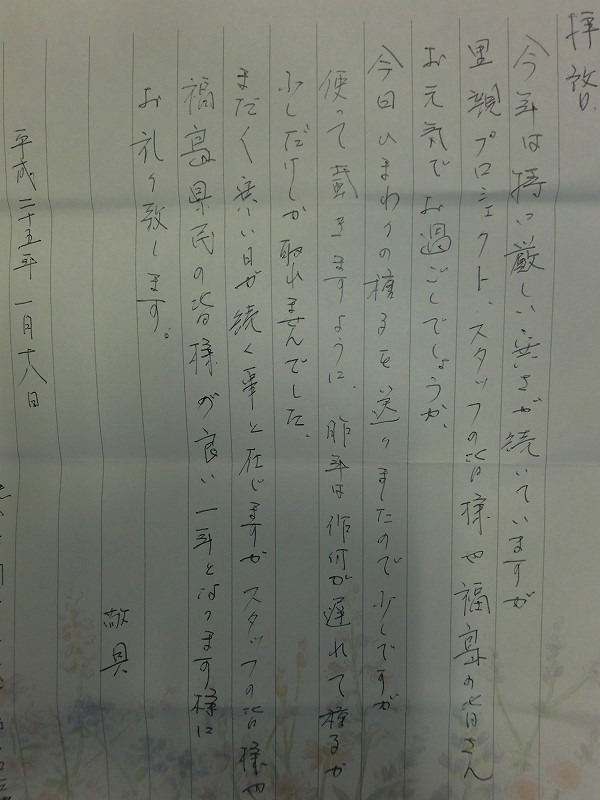 拝啓.
今年は特に厳しい寒さが続いていますが
里親プロジェクト、スタッフの皆様や福島の皆さん
お元気でお過ごしでしょうか、
今回ひまわりの種るを送りましたので少しですが
使って戴きますように、昨年は作付が遅れて種るが
少しだけしか取れませんでした、
まだ〱寒い日が続く事と存じますがスタッフの皆様や
福島県民の皆様が良い一年となります様に
お礼り致します。
敬具
平成二十五年一月十八日